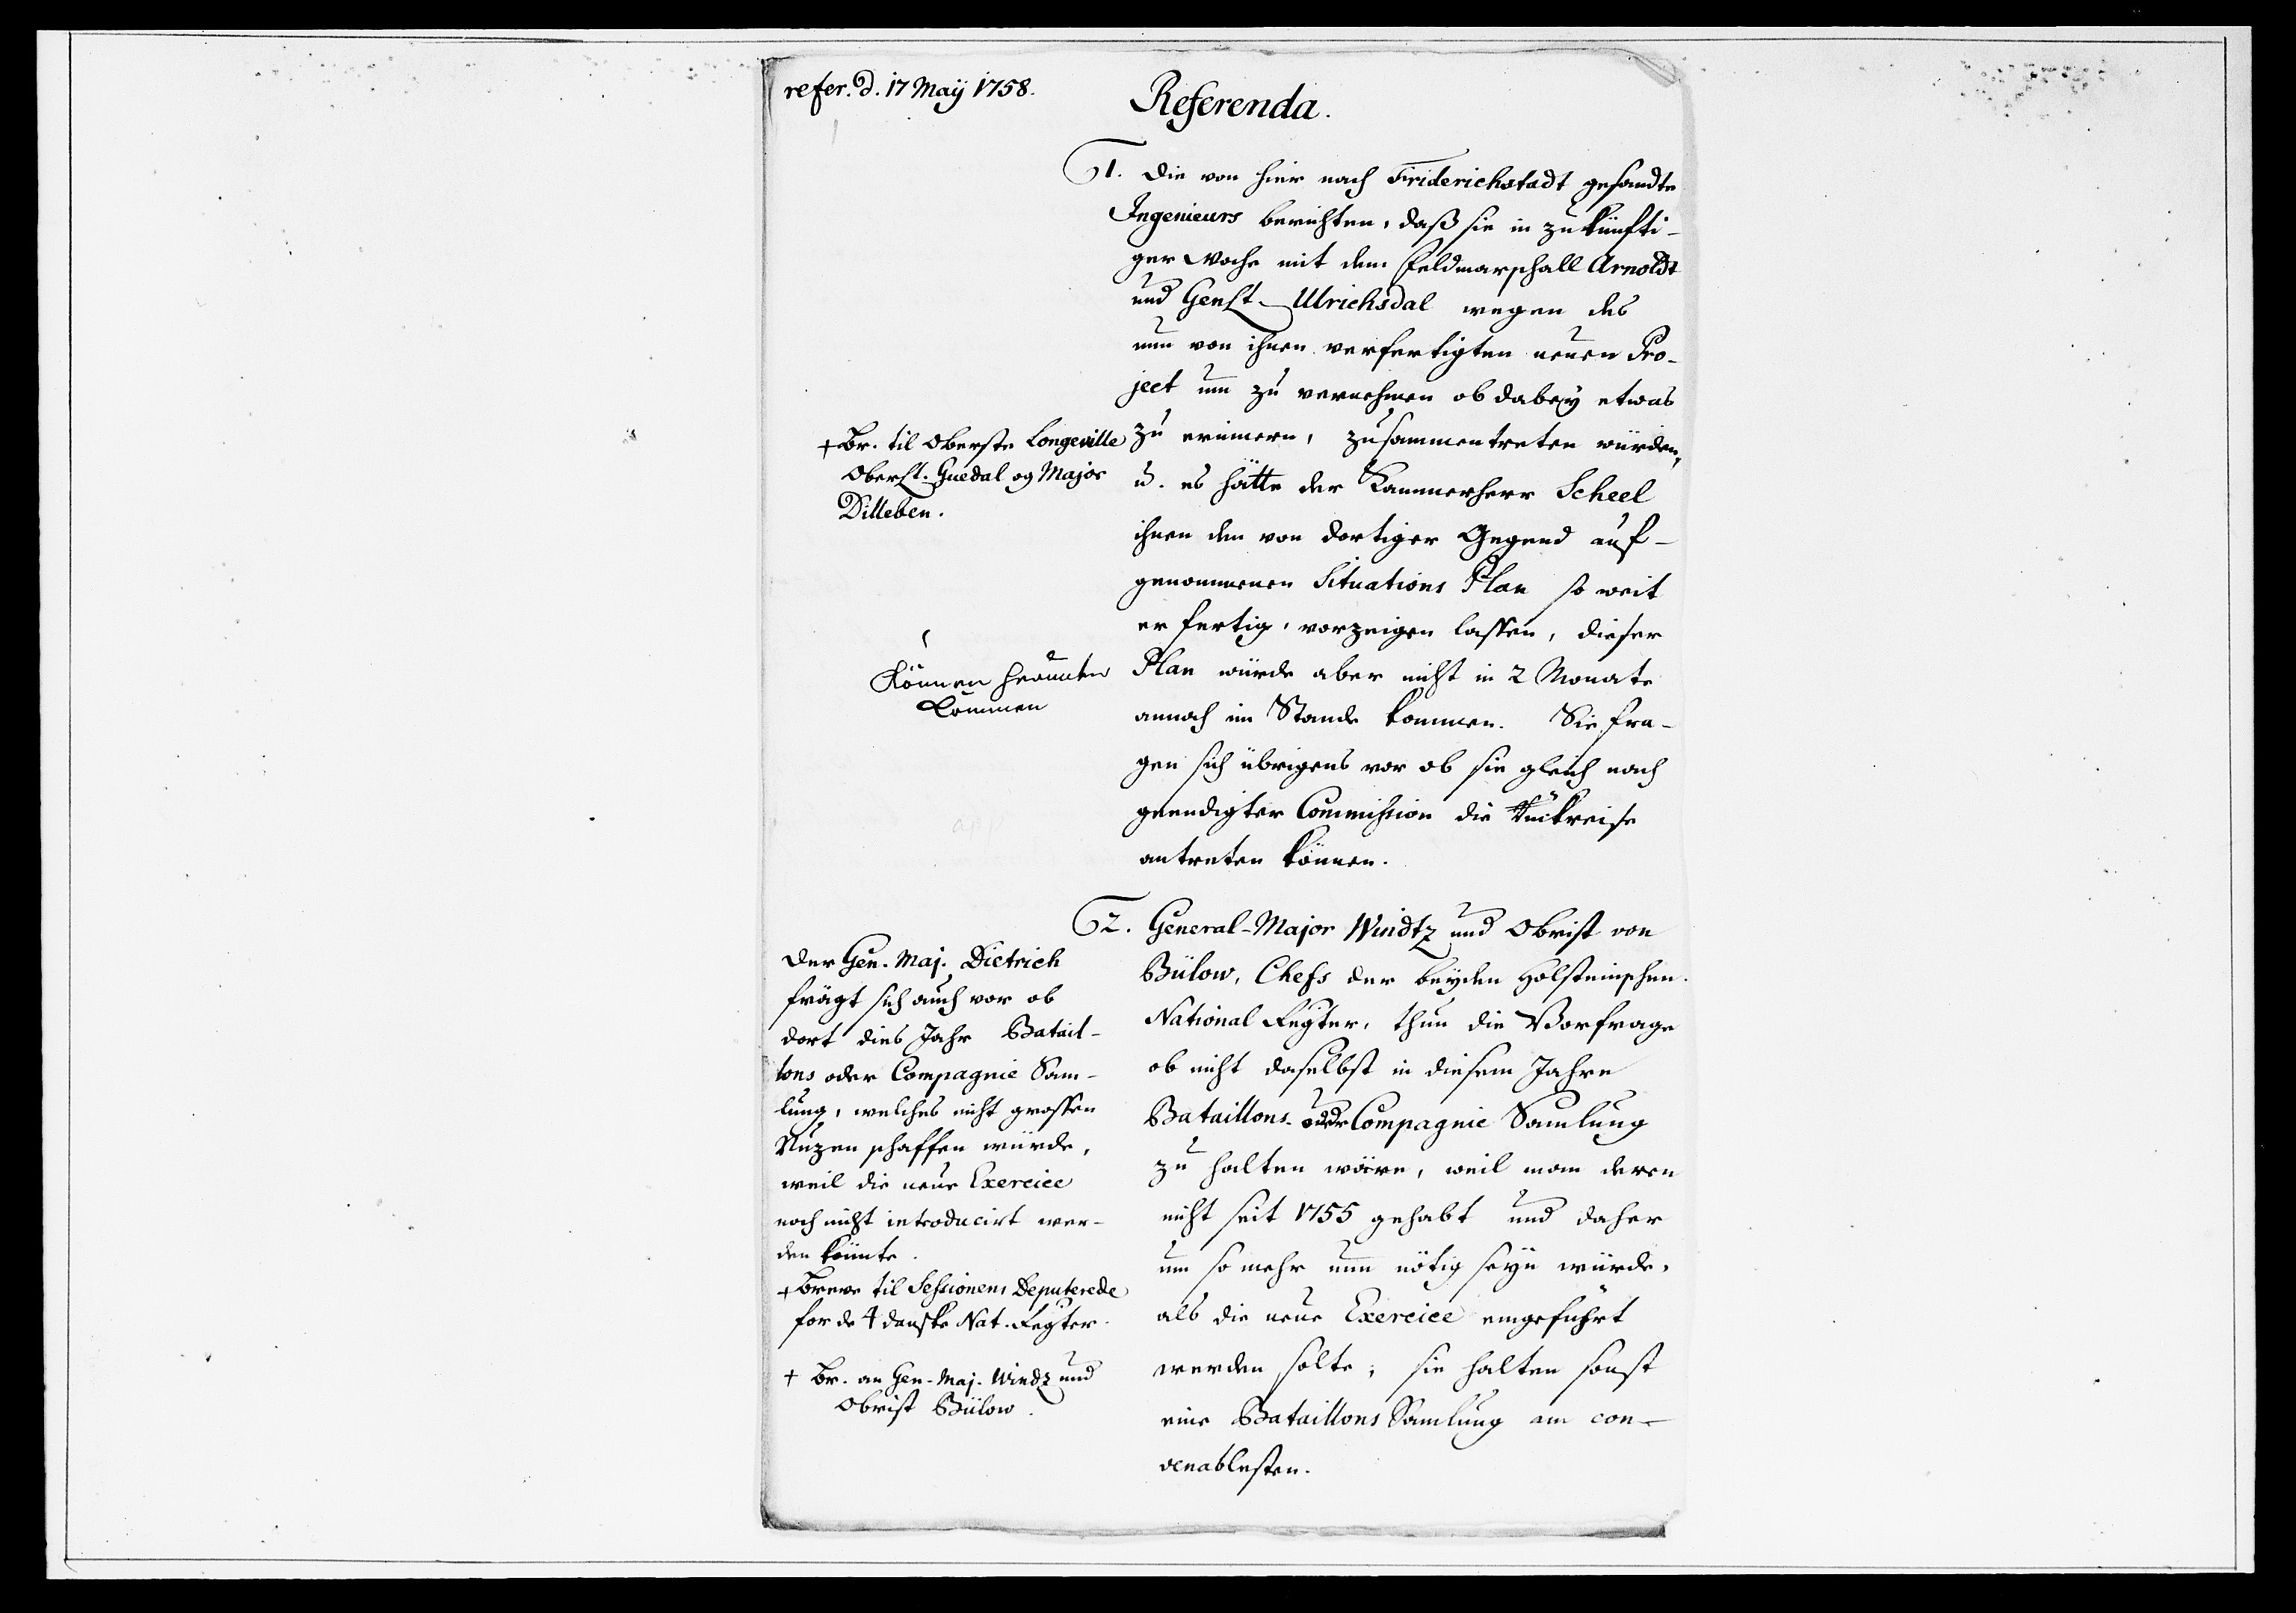 refer. d. 17 Maij 1758.
Referenda.
1. Die von hier nach Friderichstadt gesandte
Ingenieurs berichten, daß sie in zukünfti-
ger Woche mit dem Feldmarschall Arnoldt
und Genlt. Ulrichsdal wegen des
nun von ihnen verfertigten neuen Pro-
ject um zu vernehmen ob dabey etwas
zu erinnern, zusammentreten würden,
u. es hätte der Kammerherr Scheel
ihnen den von dortiger Gegend auf-
genommenen Situations Plan so weit
er fertig, vorzeigen lassen, dieser
Plan würde aber nicht in 2 Monate
annoch im Stande kommen. Sie fra-
gen sich übrigens vor ob sie gleich nach
geendigter Commission die Rückreise
antreten können.
+ Br. til Oberste Longeville
Oberstl. Guedal og Major
Dilleben.
Können herunter
kommen
2. General-Major Windtz und Obrist von
Bülow, Chefs der beyden Holsteinschen
National Regter, thun die Vorfrage
ob nicht daselbst in diesem Jahre
Bataillons- oder Compagnie Samlung
zu halten wäre, weil man deren
nicht seit 1755 gehabt und daher
um so mehr nun nötig seyn würde,
als die neue Exercice eingeführt
werden solte; sie halten sonst
eine Bataillons Samlung am con-
venablesten.
Der Gen. Maj. Dietrich
frägt sich auch vor ob
dort dies Jahr Batail-
lons oder Compagnie Sam-
lung, welches nicht grossen
Nuzen schaffen würde,
weil die neue Exercice
noch nicht introducirt wer-
den könnte.
+ Breve til Sessionens Deputerede
for de 4 danske Nat. Regter.
+ Br. an Gen. Maj. Windz und
Obrist Bülow.